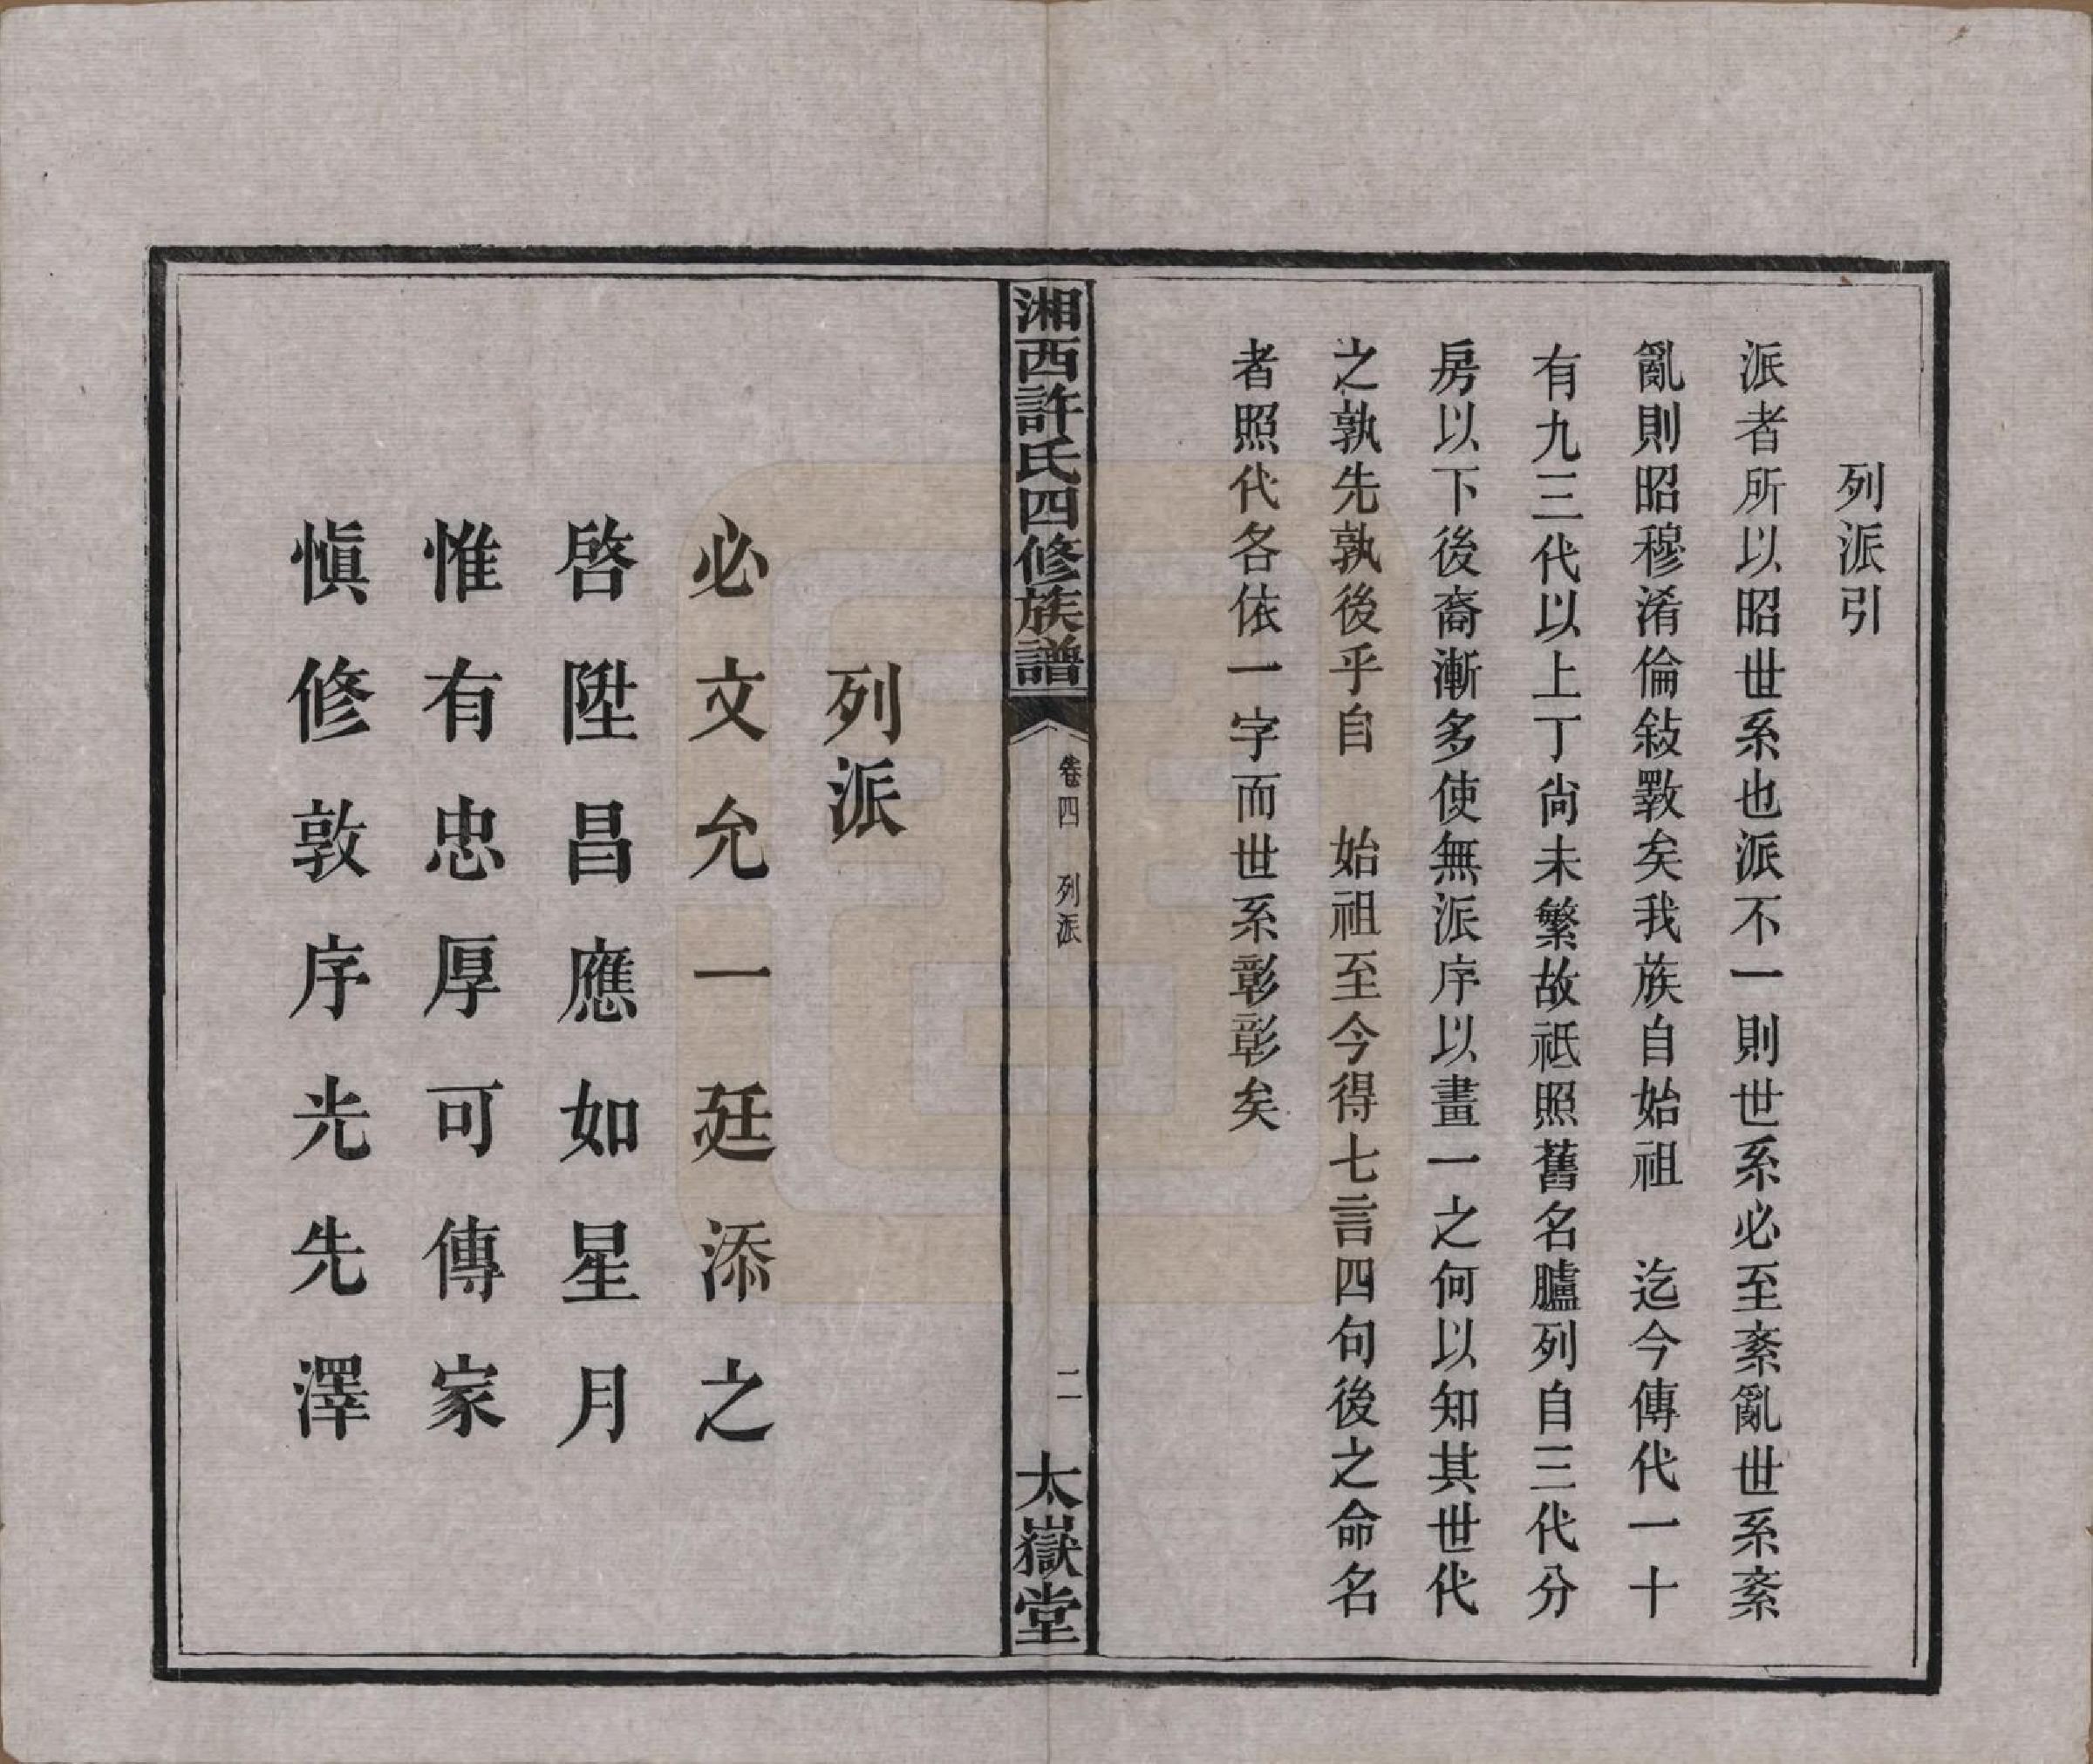 列派引
派者所以昭世系也派不一則世系必至紊亂世系紊
亂則昭穆淆倫敍斁矣我族自始祖　迄今傳代一十
有九三代以上丁尙未繁故祗照舊名臚列自三代分
房以下後裔漸多使無派序以畫一之何以知其世代
之孰先孰後乎自　始祖至今得七言四句後之命名
者照代各依一字而世系彰彰矣
湘西許氏四修族譜
卷四　列派
二
太嶽堂
列派
必文允一廷添之
啓陞昌應如星月
惟有忠厚可傳家
愼修敦序光先澤